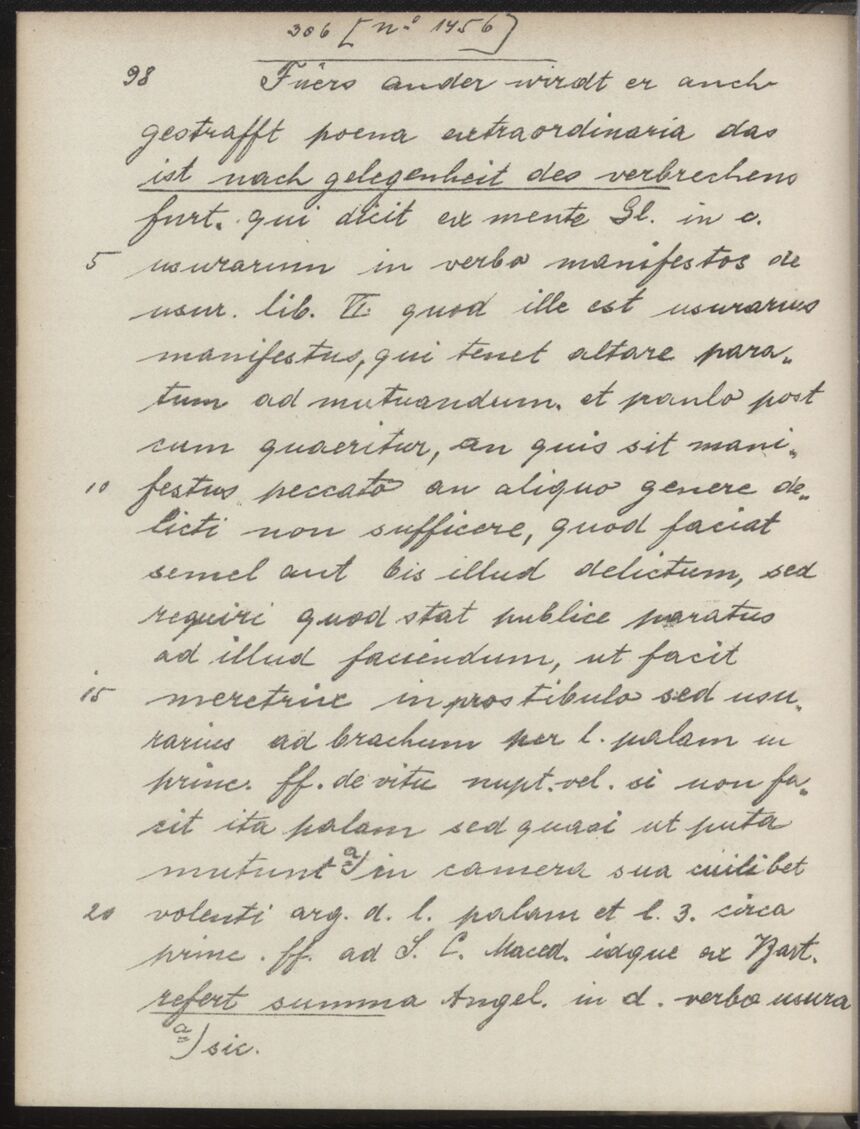 306 [n.º 1456]
98 Füers ander wirdt er auch
gestrafft poena extraordinaria das
ist nach gelegenheit des verbrechens
furt. qui dicit ex mente Gl. in c.
5 usurarum in verbo manifestos de
usur. lib. VI. quod ille est usurarius
manifestus, qui tenet altare para„
tum ad mutuandum. et paulo post
cum quaeritur, an quis sit mani„
10 festus peccato an aliquo genere de„
licti non sufficere, quod faciat
semel aut bis illud delictum, sed
requiri quod stat publice paratus
ad illud faciendum, ut facit
15 meretrix in prostibulo sed usu„
rarius ad brachum per l. palam in
princ. ff. de vitu nupt. vel. si non fa„
cit ita palam sed quasi ut puta
mutunt a) in camera sua cuilibet
20 volenti arg. d. l. palam et l. 3. circa
princ. ff. ad S. C. Maced. idque ex Bart.
refert summa Angel. in d. verbo usura
a) sic.